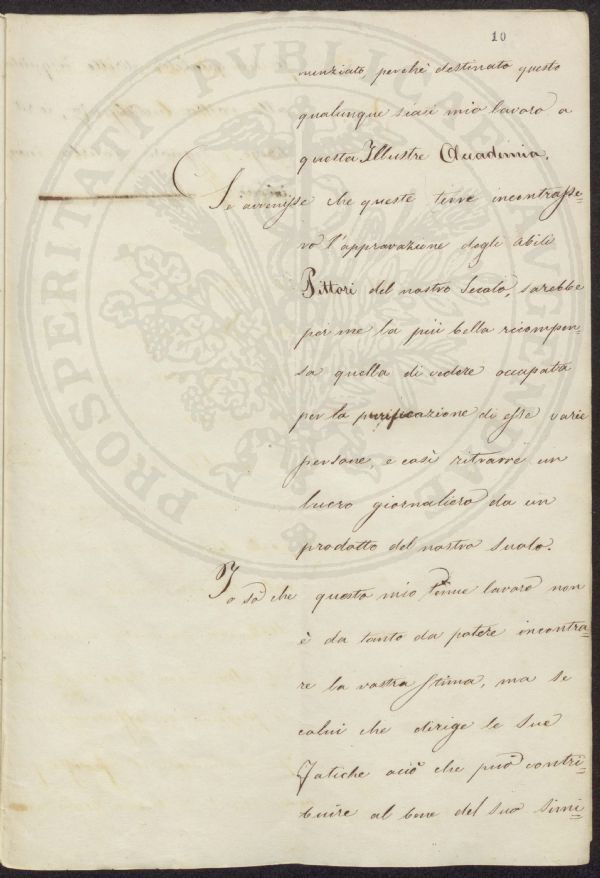 10
nunziato, perchè destinato questo
qualunque siasi mio lavoro a
questa Illustre Accademia.
Se avvenisse che queste terre incontrasse=
ro l'approvazione degli abili
Pittori del nostro Secolo, sarebbe
per me la più bella ricompen=
sa quella di vedere occupata
per la purificazione di esse varie
persone, e così ritrarre un
lucro giornaliero da un
prodotto del nostro suolo.
Io sò che questo mio tenue lavoro non
è da tanto da potere incontra=
re la vostra stima, ma se
colui che dirige le sue
fatiche acciò che può contri=
buire al bene del suo simi=
PROSPERITATI PUBLICAE